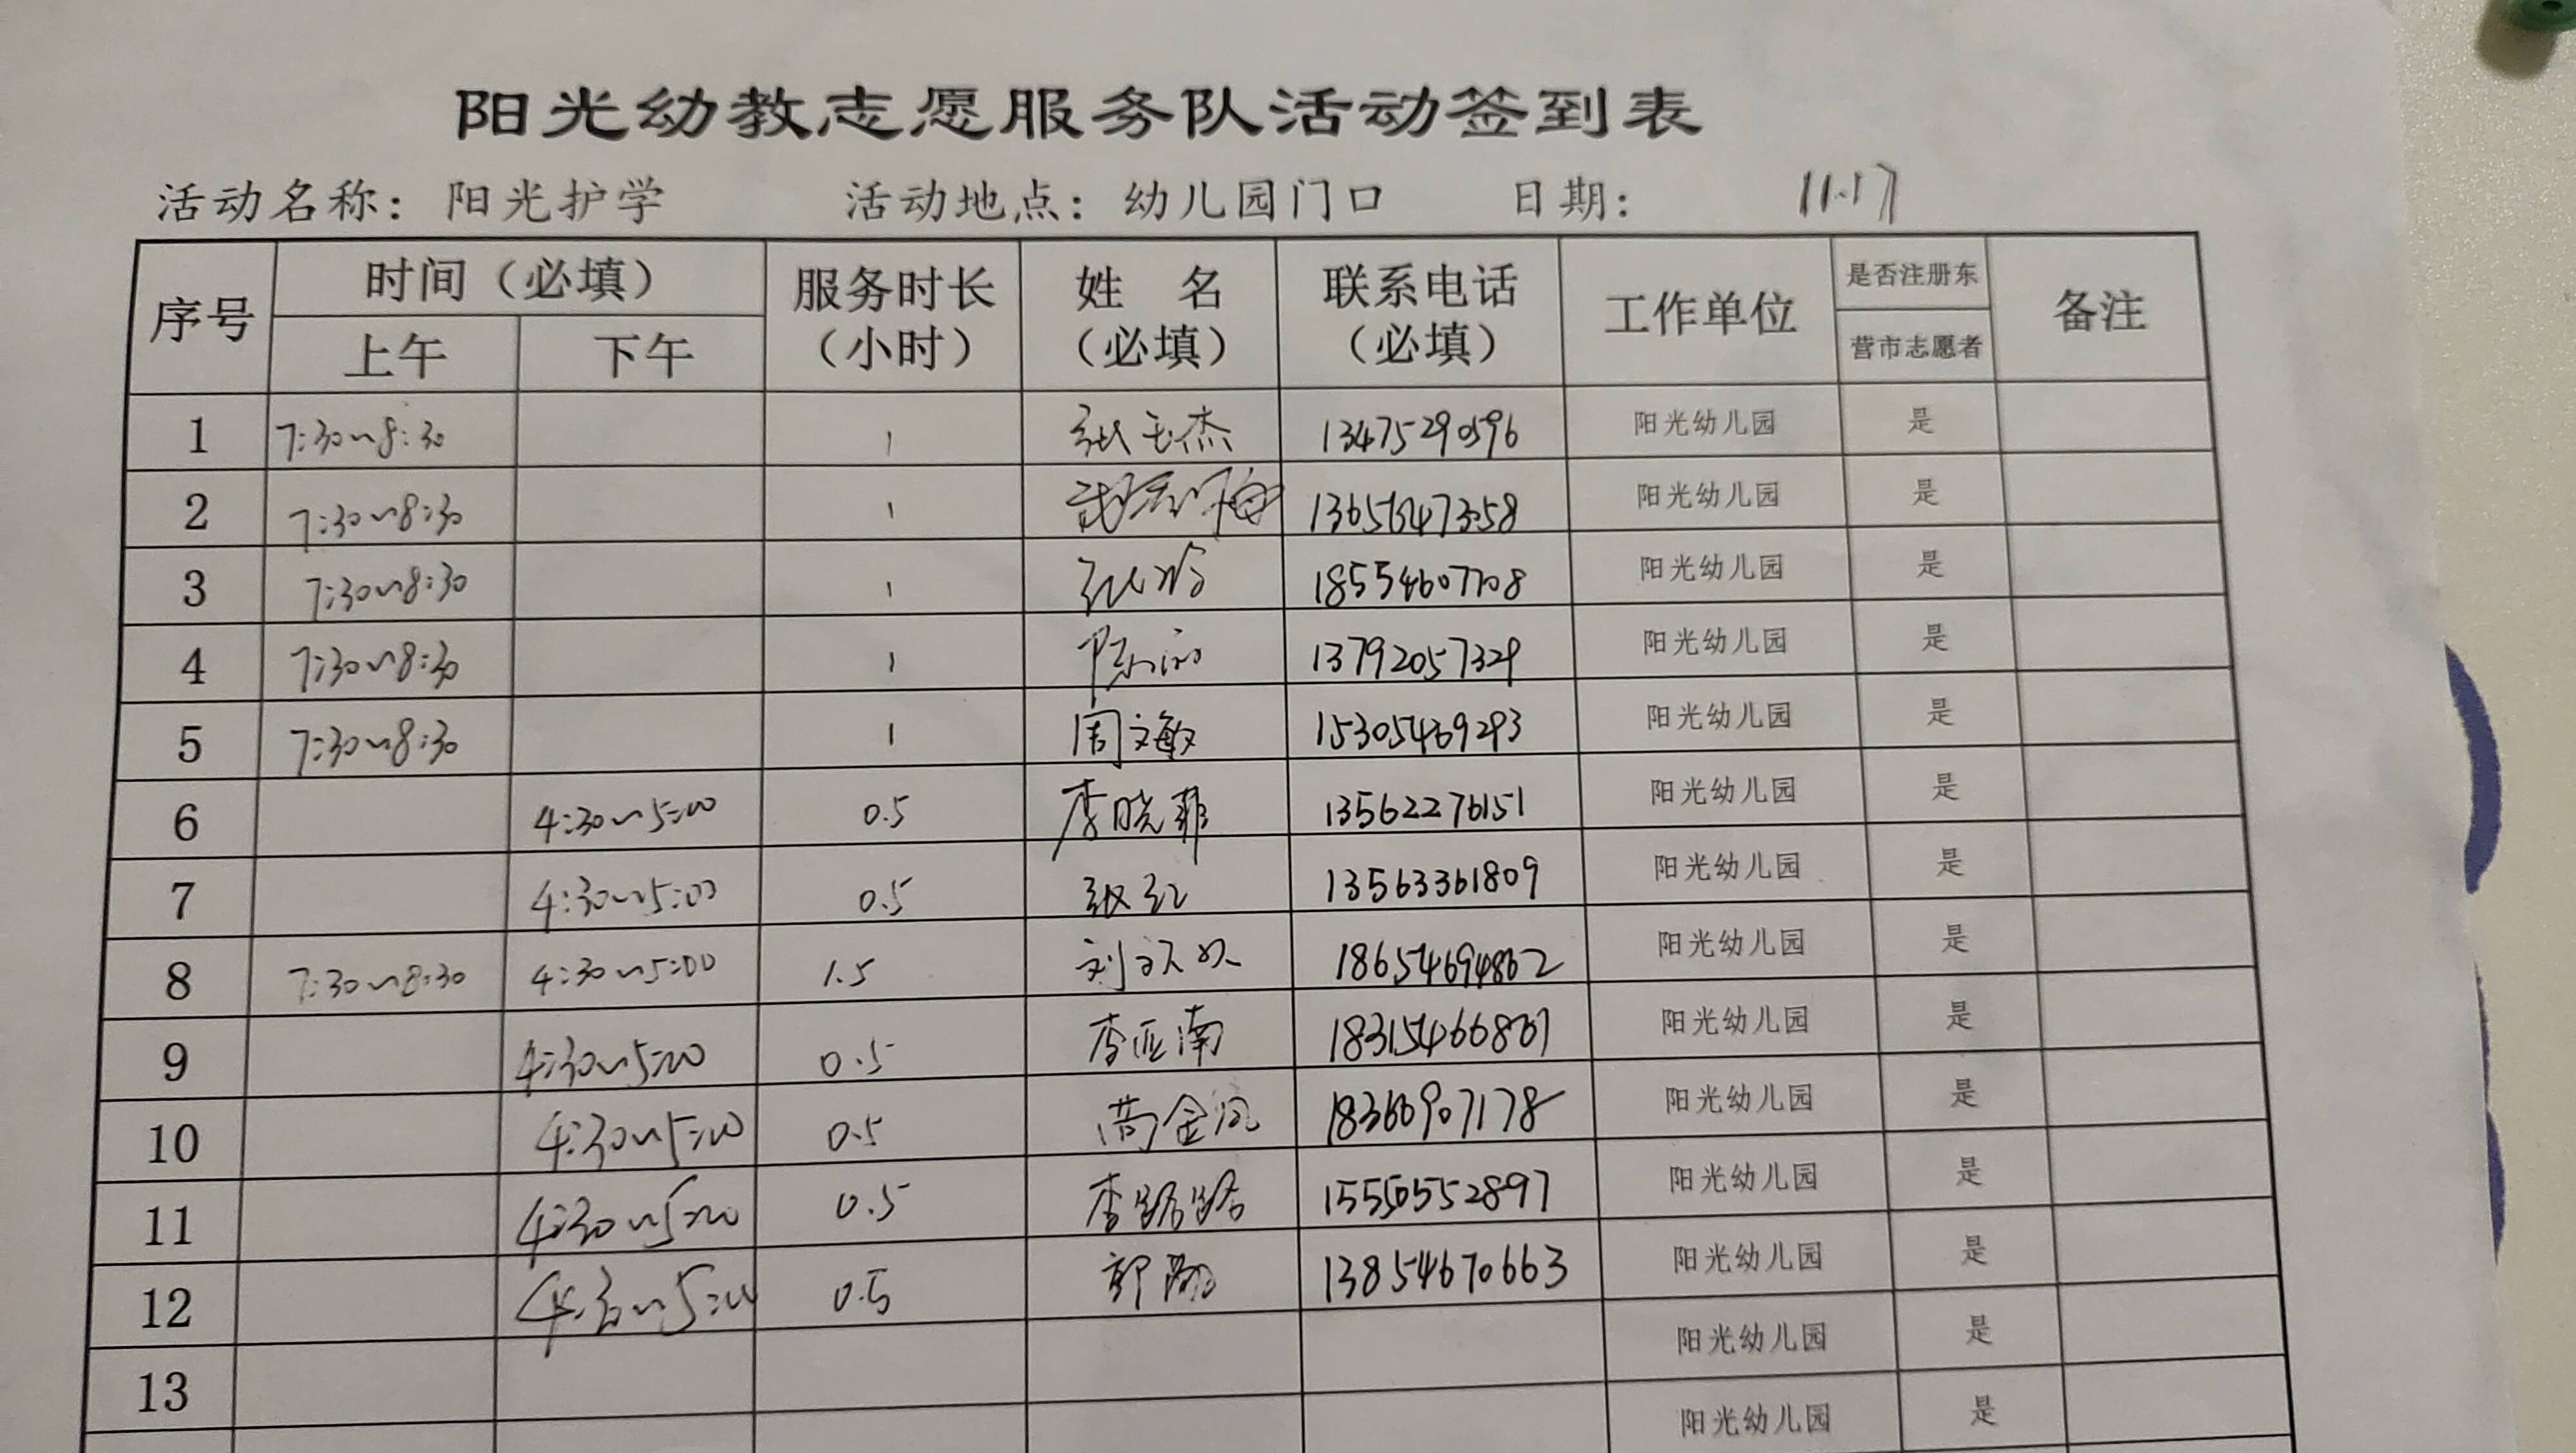 阳光幼教志愿服务队活动签到表
活动名称：阳光护学 活动地点：幼儿园门口 日期： 11.17
序号 时间（必填） 服务时长（小时） 姓 名（必填） 联系电话（必填） 工作单位 是否注册东营市志愿者 备注
上午 下午
1 7:30~8:30 1 张玉杰 13475290596 阳光幼儿园 是
2 7:30~8:30 1 阳光幼儿园 是
3 7:30~8:30 1 18554607708 阳光幼儿园 是
4 7:30~8:30 1 13792057329 阳光幼儿园 是
5 7:30~8:30 1 周文敏 15305469293 阳光幼儿园 是
6 4:30~5:00 0.5 李晓菲 13562276151 阳光幼儿园 是
7 4:30~5:00 0.5 张红 13563361809 阳光幼儿园 是
8 7:30~8:30 4:30~5:00 1.5 18654694862 阳光幼儿园 是
9 4:30~5:00 0.5 李亚南 阳光幼儿园 是
10 4:30~5:00 0.5 18366907178 阳光幼儿园 是
11 4:30~5:00 0.5 李路路 15550552897 阳光幼儿园 是
12 4:30~5:00 0.5 13854670663 阳光幼儿园 是
13 阳光幼儿园 是
阳光幼儿园 是